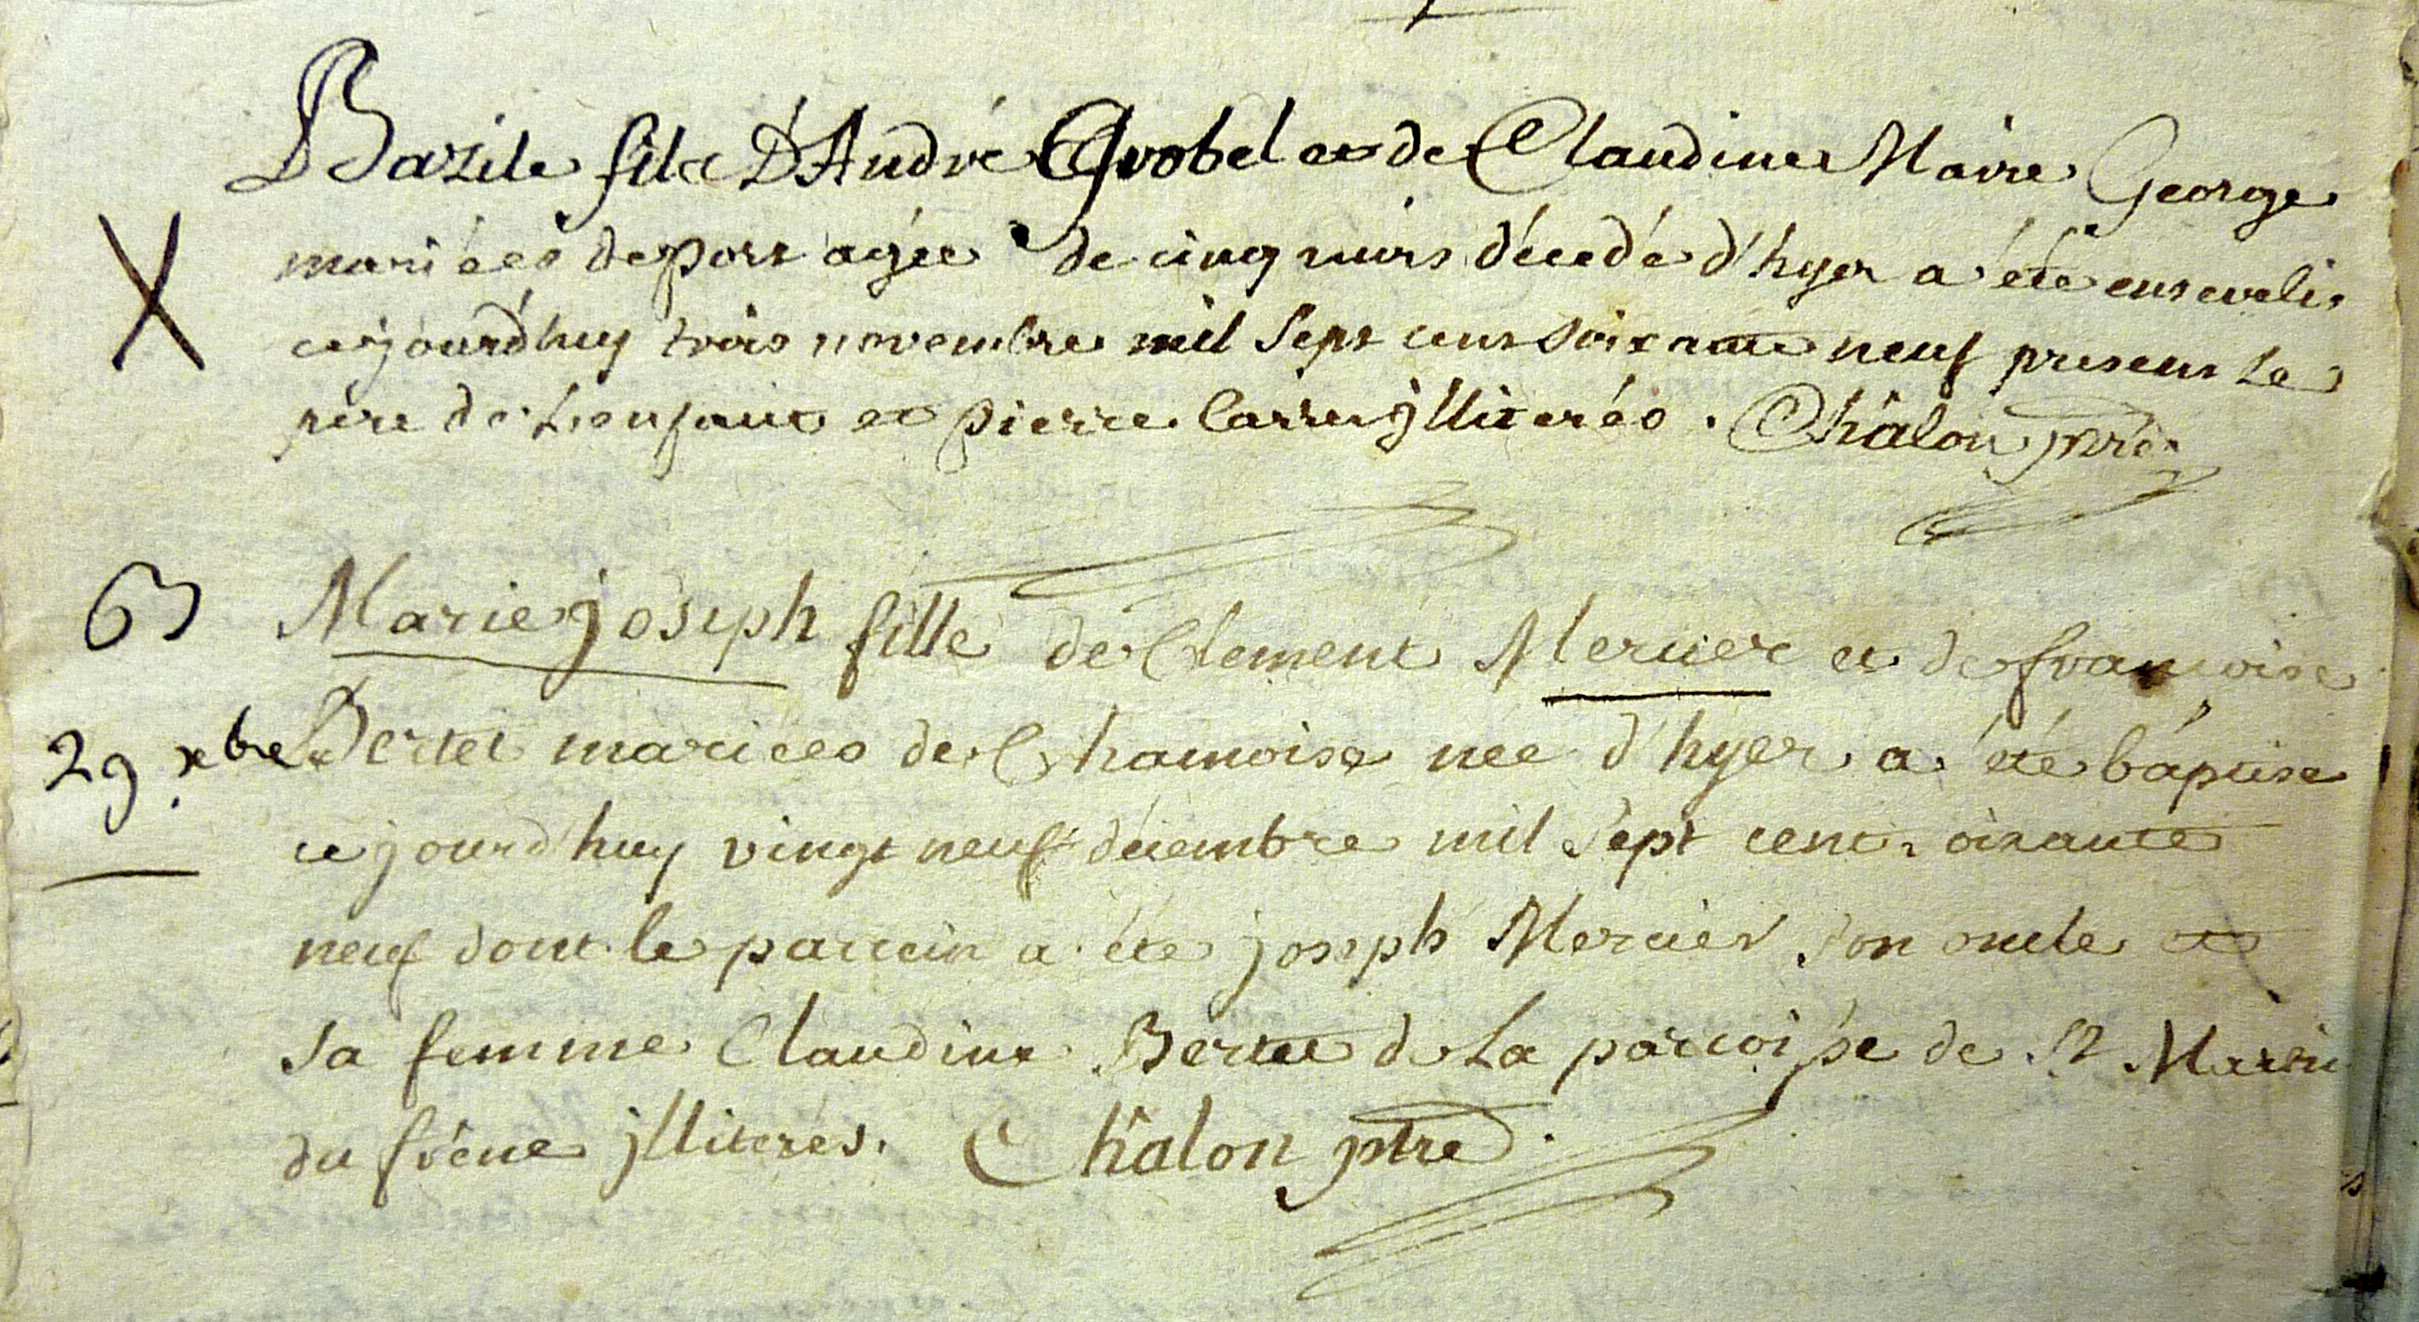 Bazile fils D'André Grobel et de Claudine Maire George
mariées de port agée de cinq mois décedé d'hyer a été ensevelis
cejourd'huy trois novembre mil sept cent soixante neuf present le
père de l'enfant et pierre Carrer jlliterés. Châlon ptre
63 Marie joseph fille de Clement Mercier et de françoise
29 xbre Bertet mariées de Chamoise née d'hyer a été baptise
cejourd'huy vingt neuf décembre mil sept cent soixante
neuf dont le parrein a été joseph Mercier son oncle et
sa femme Claudine Bertet de la parroisse de St Martin
du frêne jlliterés. Châlon ptre.